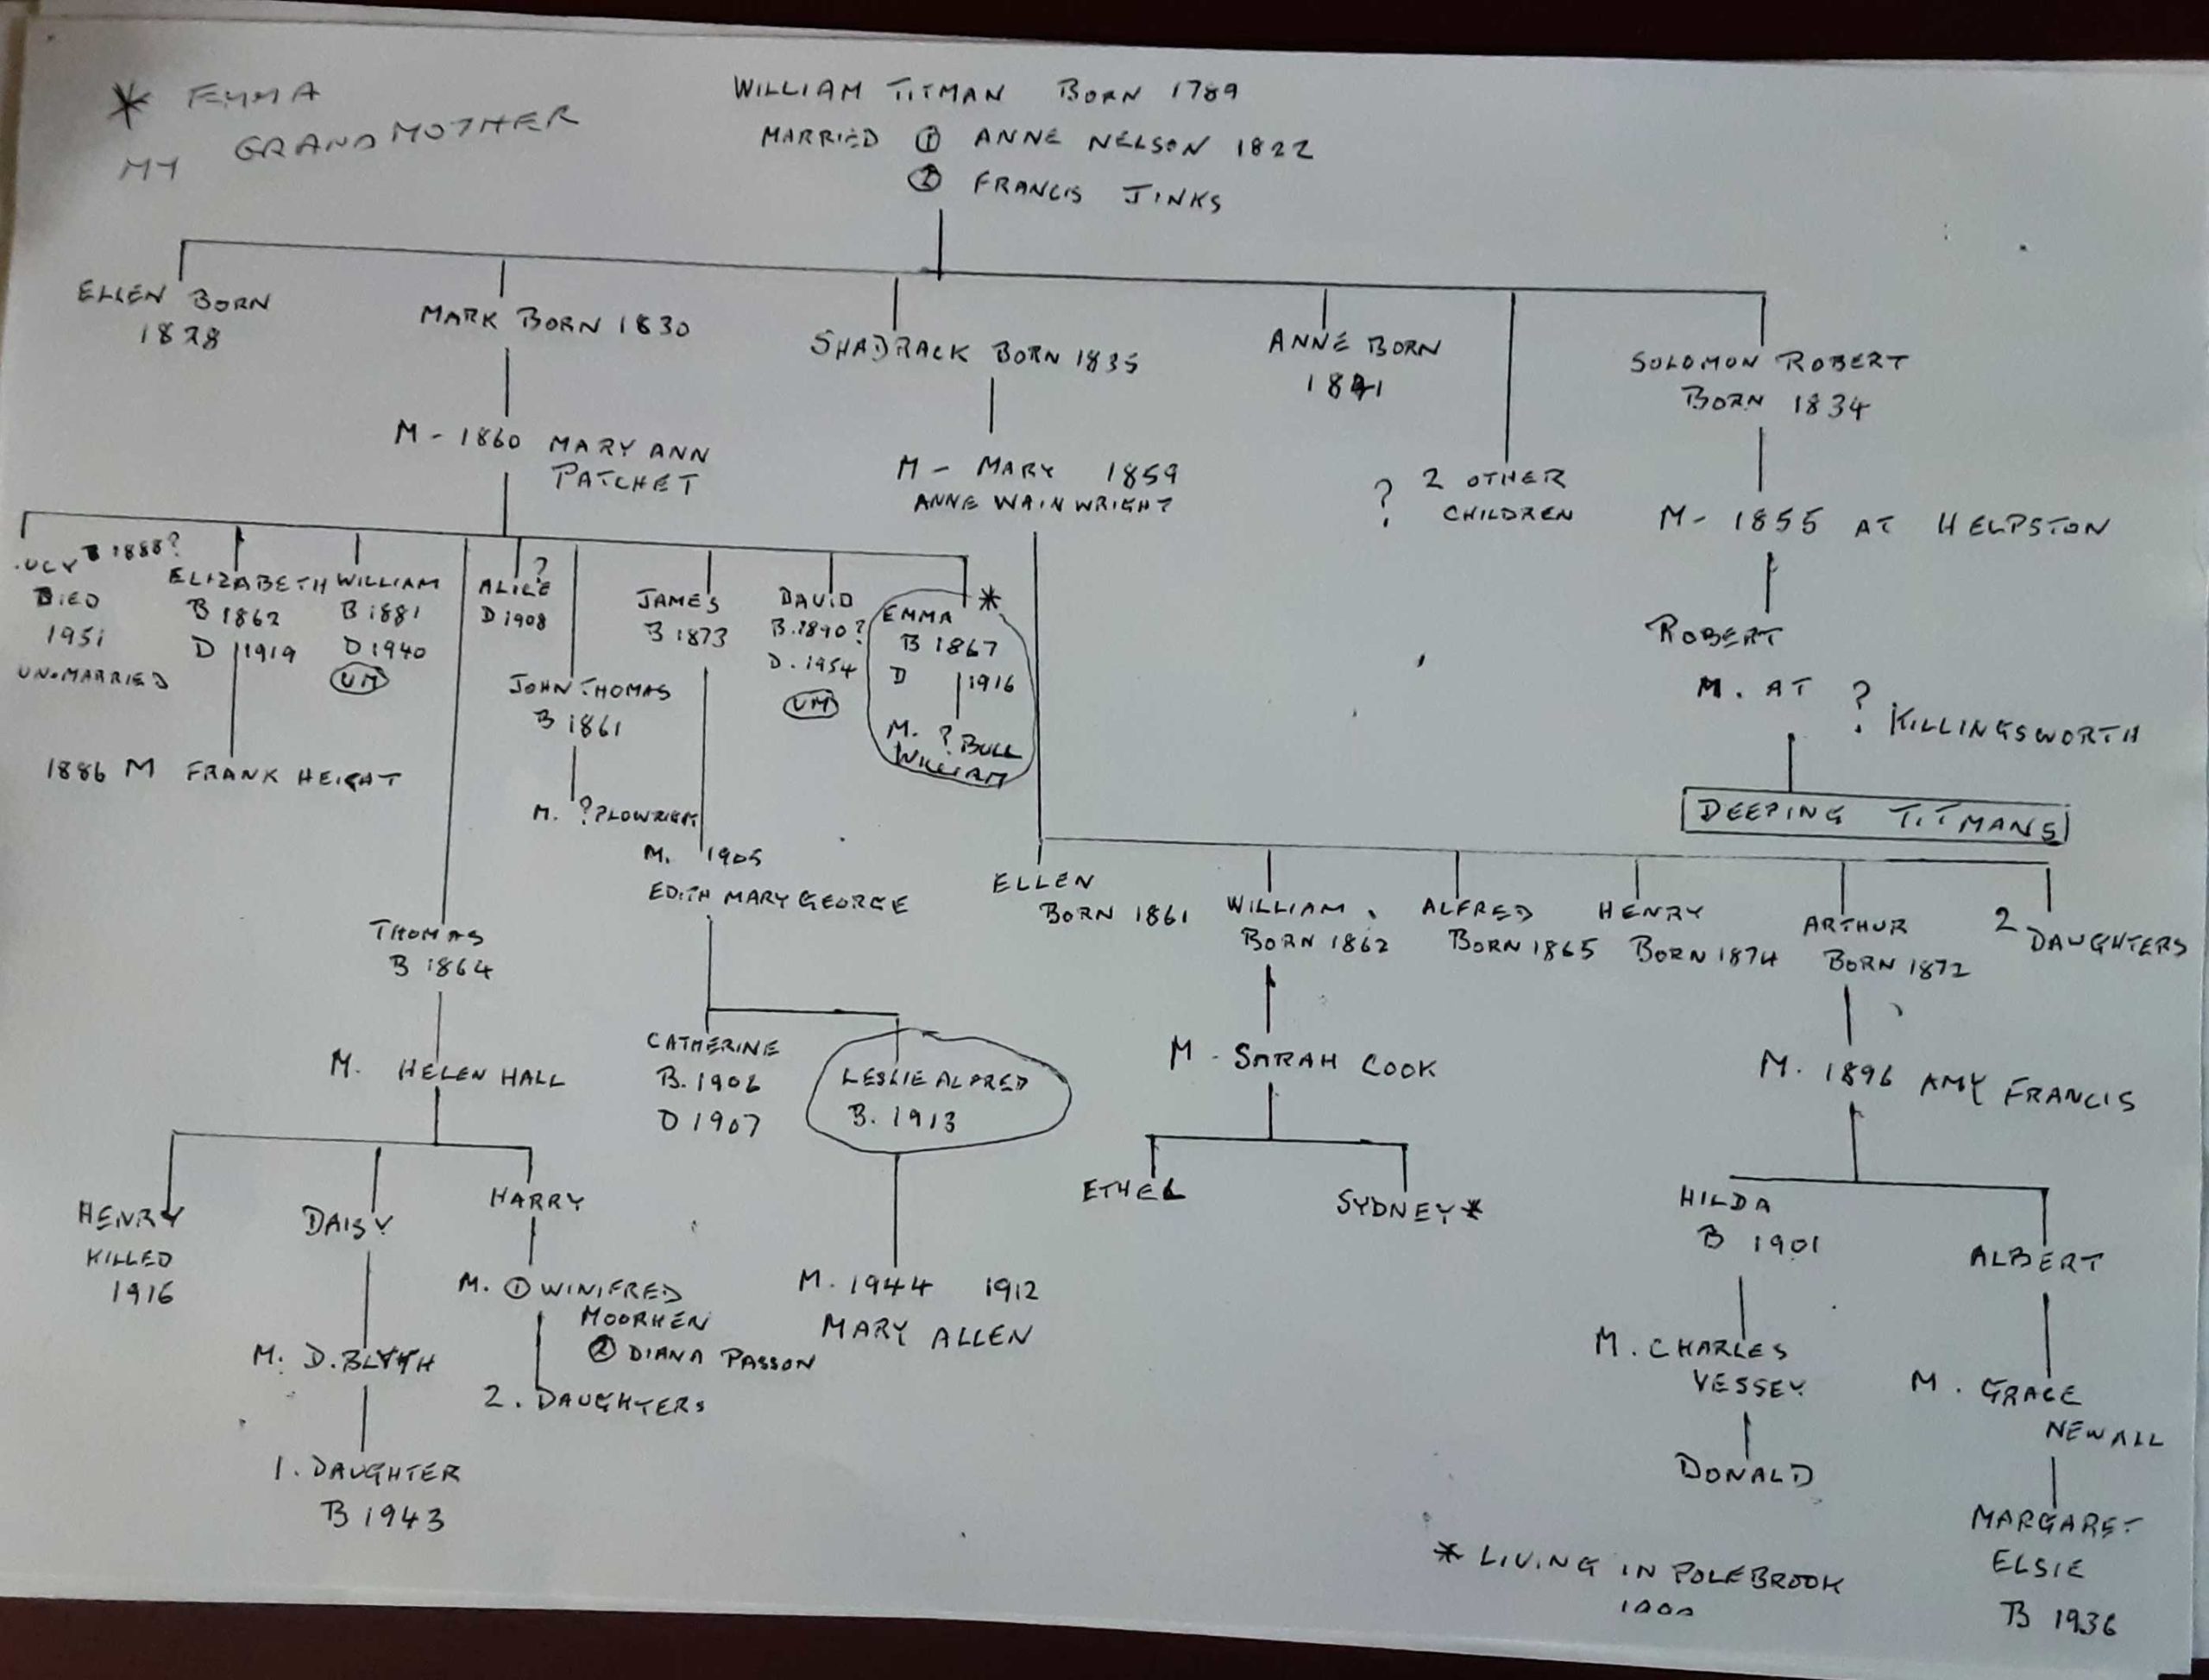 * EMMA
MY GRANDMOTHER
WILLIAM TITMAN BORN 1789
MARRIED ① ANNE NELSON 1822
② FRANCIS JINKS
ELLEN BORN
1828
MARK BORN 1830
SHADRACK BORN 1835
ANNE BORN
1841
SOLOMON ROBERT
BORN 1834
M - 1860 MARY ANN
PATCHET
M - MARY 1859
ANNE WAINWRIGHT
? 2 OTHER
CHILDREN
M - 1855 AT HELPSTON
UCY B 1888?
DIED
1951
UNMARRIED
ELIZABETH
B 1862
D 1919
WILLIAM
B 1881
D 1940
UM
ALICE ?
D 1908
JOHN THOMAS
B 1861
JAMES
B 1873
DAVID
B. 1890?
D. 1954
UM
EMMA *
B 1867
D 1916
M. ? BULL
WILLIAM
ROBERT
M. AT ? KILLINGSWORTH
DEEPING TITMANS
1886 M FRANK HEIGHT
M. ? PLOWRIGHT
M. 1905
EDITH MARY GEORGE
ELLEN
BORN 1861
WILLIAM
BORN 1862
ALFRED
BORN 1865
HENRY
BORN 1874
ARTHUR
BORN 1872
2 DAUGHTERS
THOMAS
B 1864
M. HELEN HALL
CATHERINE
B. 1906
D 1907
LESLIE ALFRED
B. 1913
M - SARAH COOK
M. 1896 AMY FRANCIS
HENRY
KILLED
1916
DAISY
HARRY
ETHEL
SYDNEY *
HILDA
B 1901
ALBERT
M. ① WINIFRED
MOORHEN
② DIANA PASSON
M. 1944 1912
MARY ALLEN
M. D. BLYTH
2. DAUGHTERS
M. CHARLES
VESSEY
M. GRACE
NEWALL
1. DAUGHTER
B 1943
DONALD
MARGARET
ELSIE
B 1936
* LIVING IN POLEBROOK